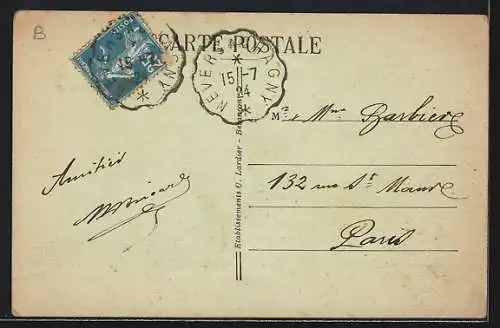 B
CARTE POSTALE
NEVERS A CHAGNY
15-7
24
M Mme Barbier
132 rue St Maur
Paris
Amitiés
Etablissements C. Lardier - Besançon